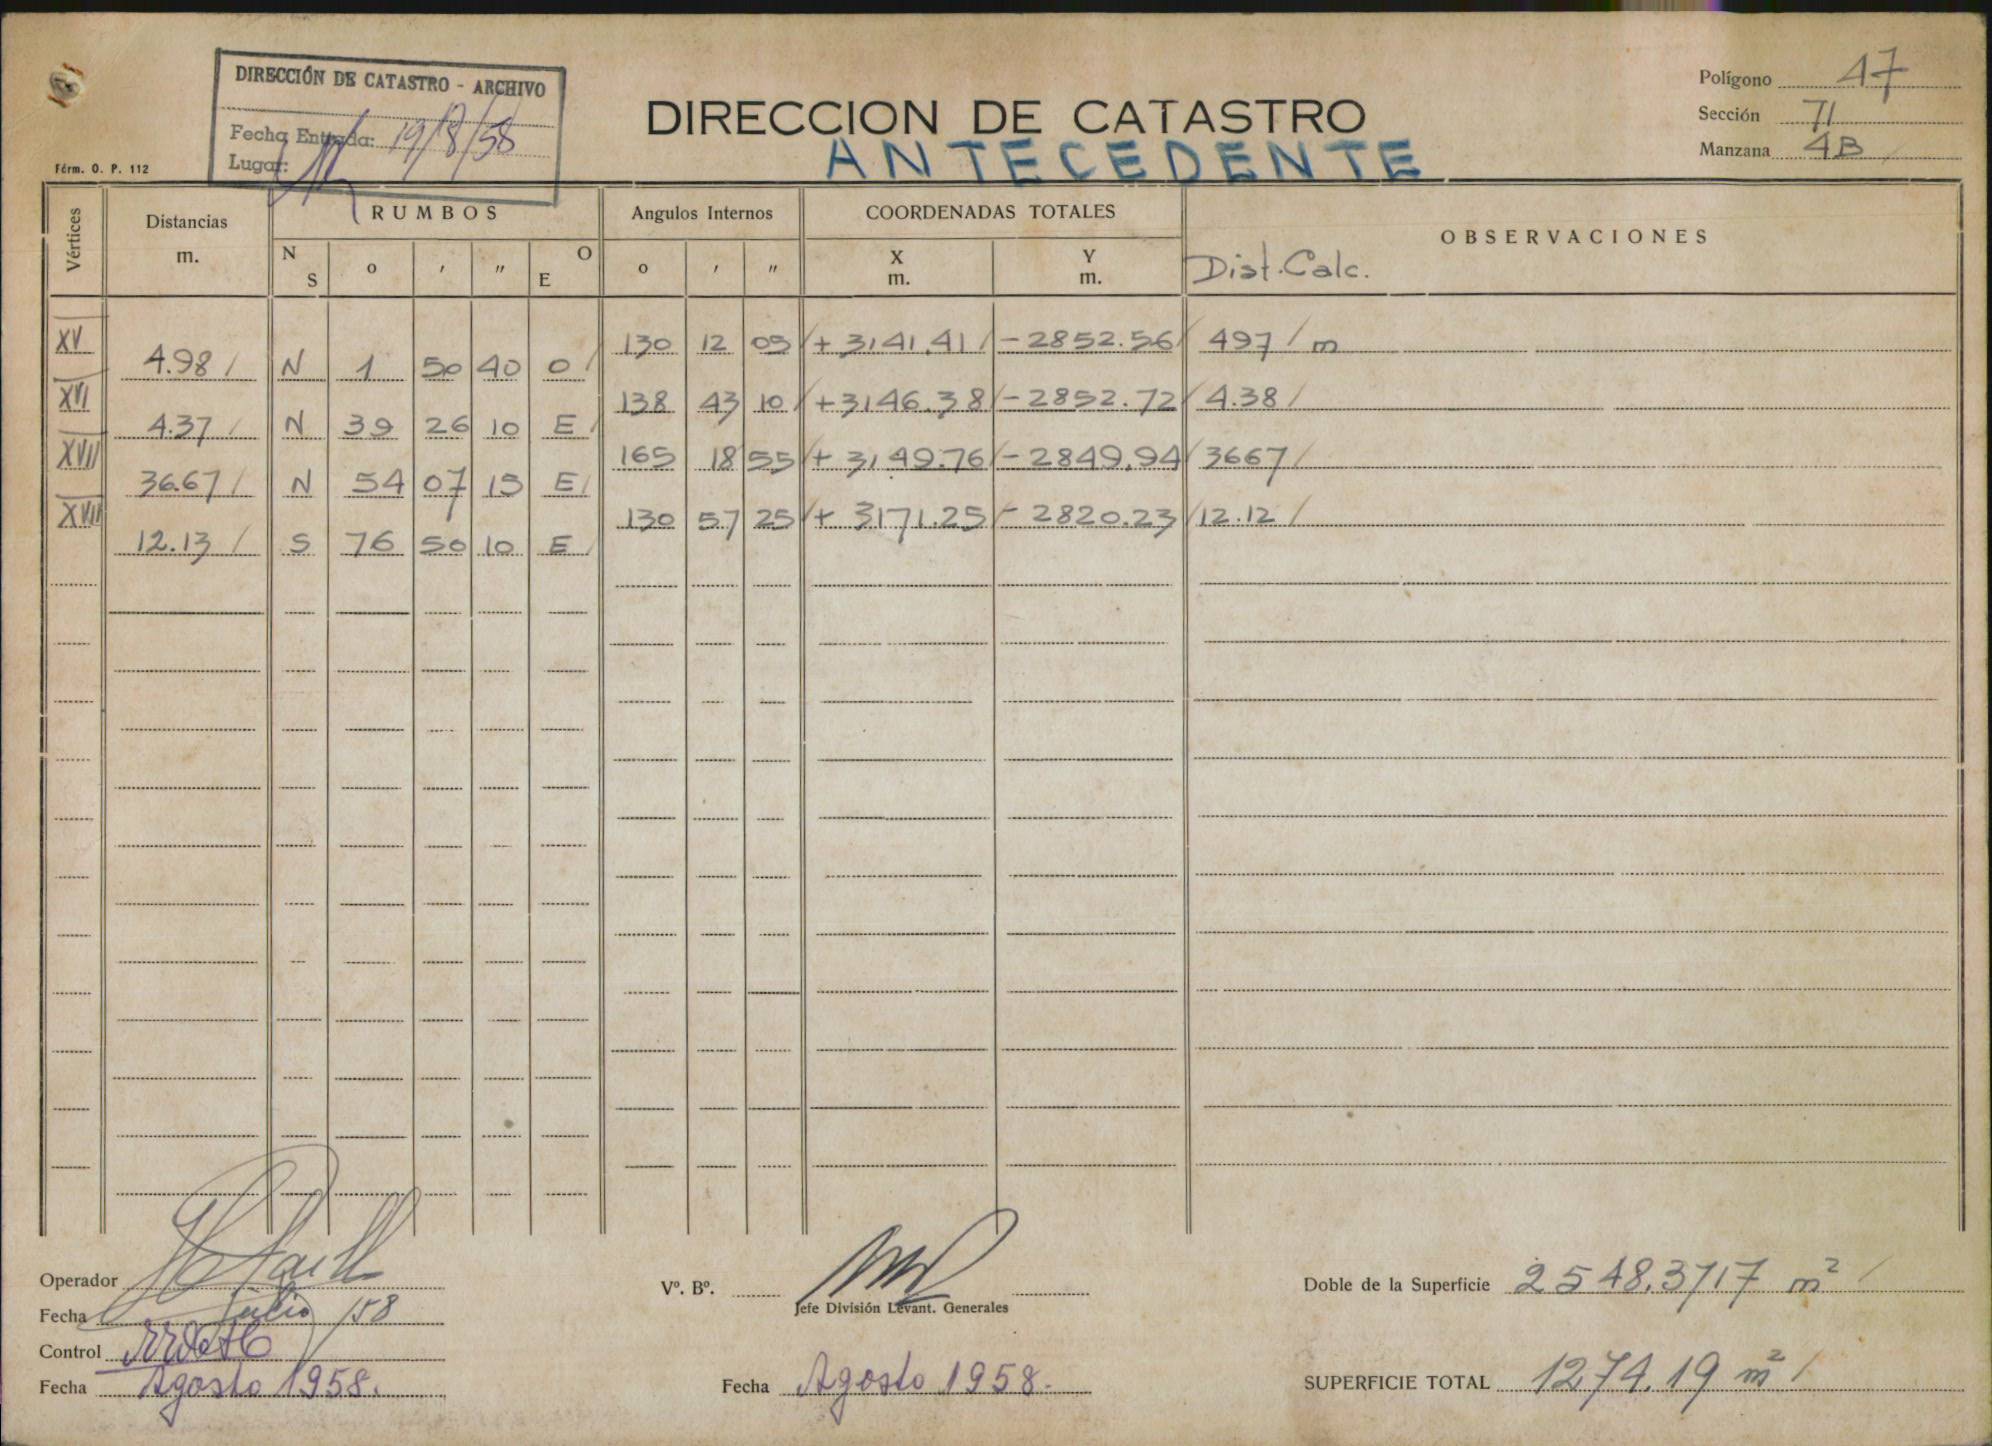 DIRECCIÓN DE CATASTRO - ARCHIVO
Fecha Entrada: 19/8/58
Lugar:
Fórm. O. P. 112
DIRECCION DE CATASTRO
ANTECEDENTE
Polígono 47
Sección 71
Manzana 4B
Vértices
Distancias m.
RUMBOS
N S o ' " O E
Angulos Internos
o ' "
COORDENADAS TOTALES
X m. Y m.
OBSERVACIONES
Dist. Calc.
XV 130 12 05 + 3141.41 - 2852.56 497 m
4.98 N 1 50 40 O
XVI 138 43 10 + 3146.38 - 2852.72 4.38
4.37 N 39 26 10 E
XVII 165 18 55 + 3149.76 - 2849.94 3667
36.67 N 54 07 15 E
XVIII 130 57 25 + 3171.25 - 2820.23 12.12
12.13 S 76 50 10 E
Operador
Fecha Julio /58
Control
Fecha Agosto 1958.
Vº. Bº.
Jefe División Levant. Generales
Fecha Agosto 1958.
Doble de la Superficie 2548.3717 m²
SUPERFICIE TOTAL 1274.19 m²